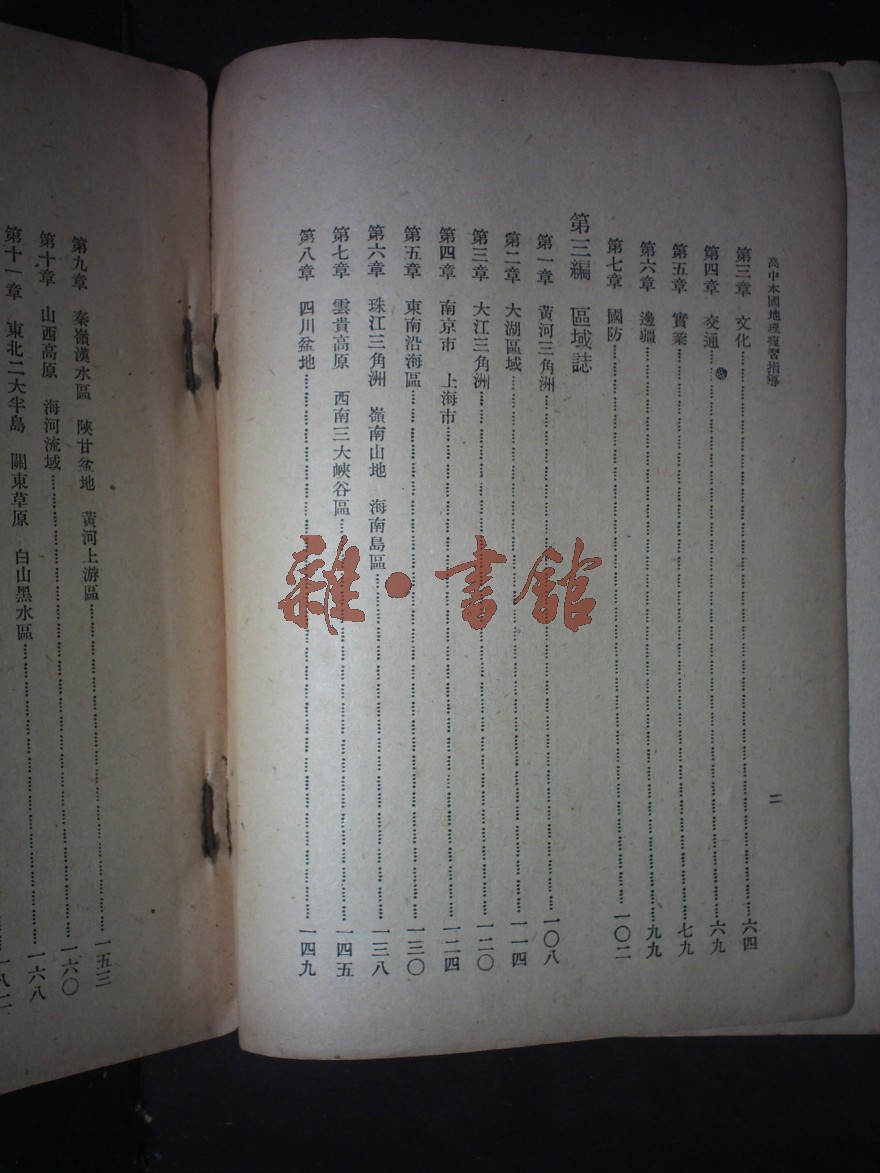 高中本國地理複習指導
二
第三章 文化……六四
第四章 交通……六九
第五章 實業……七九
第六章 邊疆……九九
第七章 國防……一〇二
第三編 區域誌
第一章 黃河三角洲……一〇八
第二章 大湖區域……一一四
第三章 大江三角洲……一二〇
第四章 南京市 上海市……一二四
第五章 東南沿海區……一三〇
第六章 珠江三角洲 嶺南山地 海南島區……一三八
第七章 雲貴高原 西南三大峽谷區……一四五
第八章 四川盆地……一四九
第九章 秦嶺漢水區 陝甘盆地 黃河上游區……一五三
第十章 山西高原 海河流域……一六〇
第十一章 東北二大半島 關東草原 白山黑水區……一六八
雜·書館